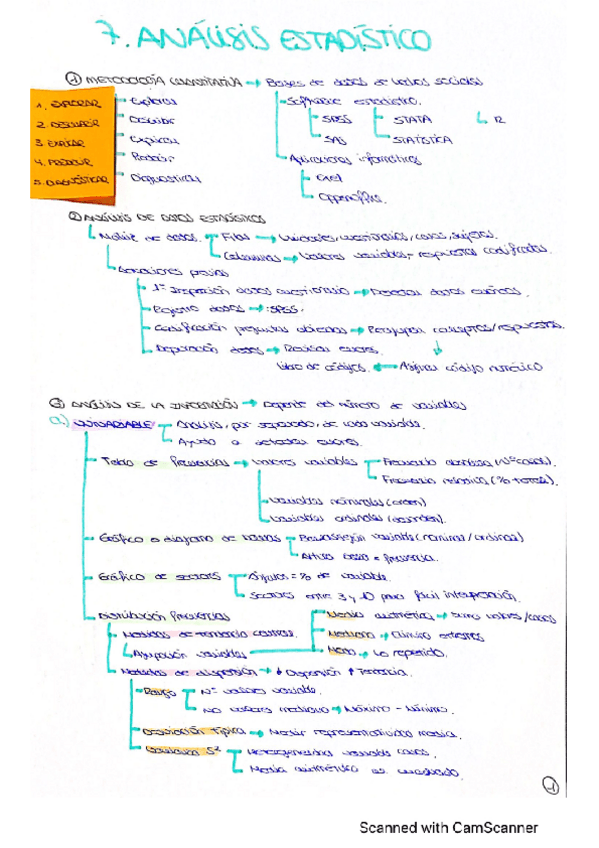 7. ANÁLISIS ESTADÍSTICO
① METODOLOGÍA CUANTITATIVA → Bases de datos de varios sociales
1. EXPLORAR Explorar Software estadístico.
2. DESCUBRIR Describir SPSS STATA R
3. EXPLICAR Explicar SAS STATISTICA
4. PREDECIR Predecir Aplicaciones informáticas
5. DIAGNOSTICAR Diagnosticar Excel
Openoffice.
② ANÁLISIS DE DATOS ESTADÍSTICOS
Matriz de datos. Filas → Unidades, cuestionarios, casos, sujetos.
Columnas → Valores variables, respuestas codificadas.
Operaciones previas
1º Inspección datos cuestionario → Detectar datos erróneos.
Registro datos → SPSS.
Codificación preguntas abiertas → conceptos/respuestas.
Depuración datos → Revisar errores.
Libro de códigos. ← Asignar código numérico
③ ANÁLISIS DE LA INFORMACIÓN → Depende del número de variables
a) UNIVARIABLE Análisis, por separado, de cada variable.
Ayuda a detectar errores.
Tabla de frecuencias → Valores variables Frecuencia absoluta (Nº casos).
Frecuencia relativa (% total).
Variables nominales (orden)
Variables ordinales
Gráfico o diagrama de barras variable (nominal/ordinal)
Altura frecuencia.
Gráfico de sectores Ángulos = % de variable.
Sectores entre 3 y 10 para fácil interpretación.
Distribución frecuencias Media aritmética → suma valores/casos
Medidas de tendencia central. Mediana → extremos
Agrupación variables Moda → Lo repetido.
Medidas de dispersión → ↓ Dispersión ↑ Tendencia.
Rango Nº valores variable.
No valores → Máximo - Mínimo.
Desviación típica → Medir representatividad media.
Varianza S² Heterogeneidad variable casos.
Media aritmética al cuadrado.
1
Scanned with CamScanner